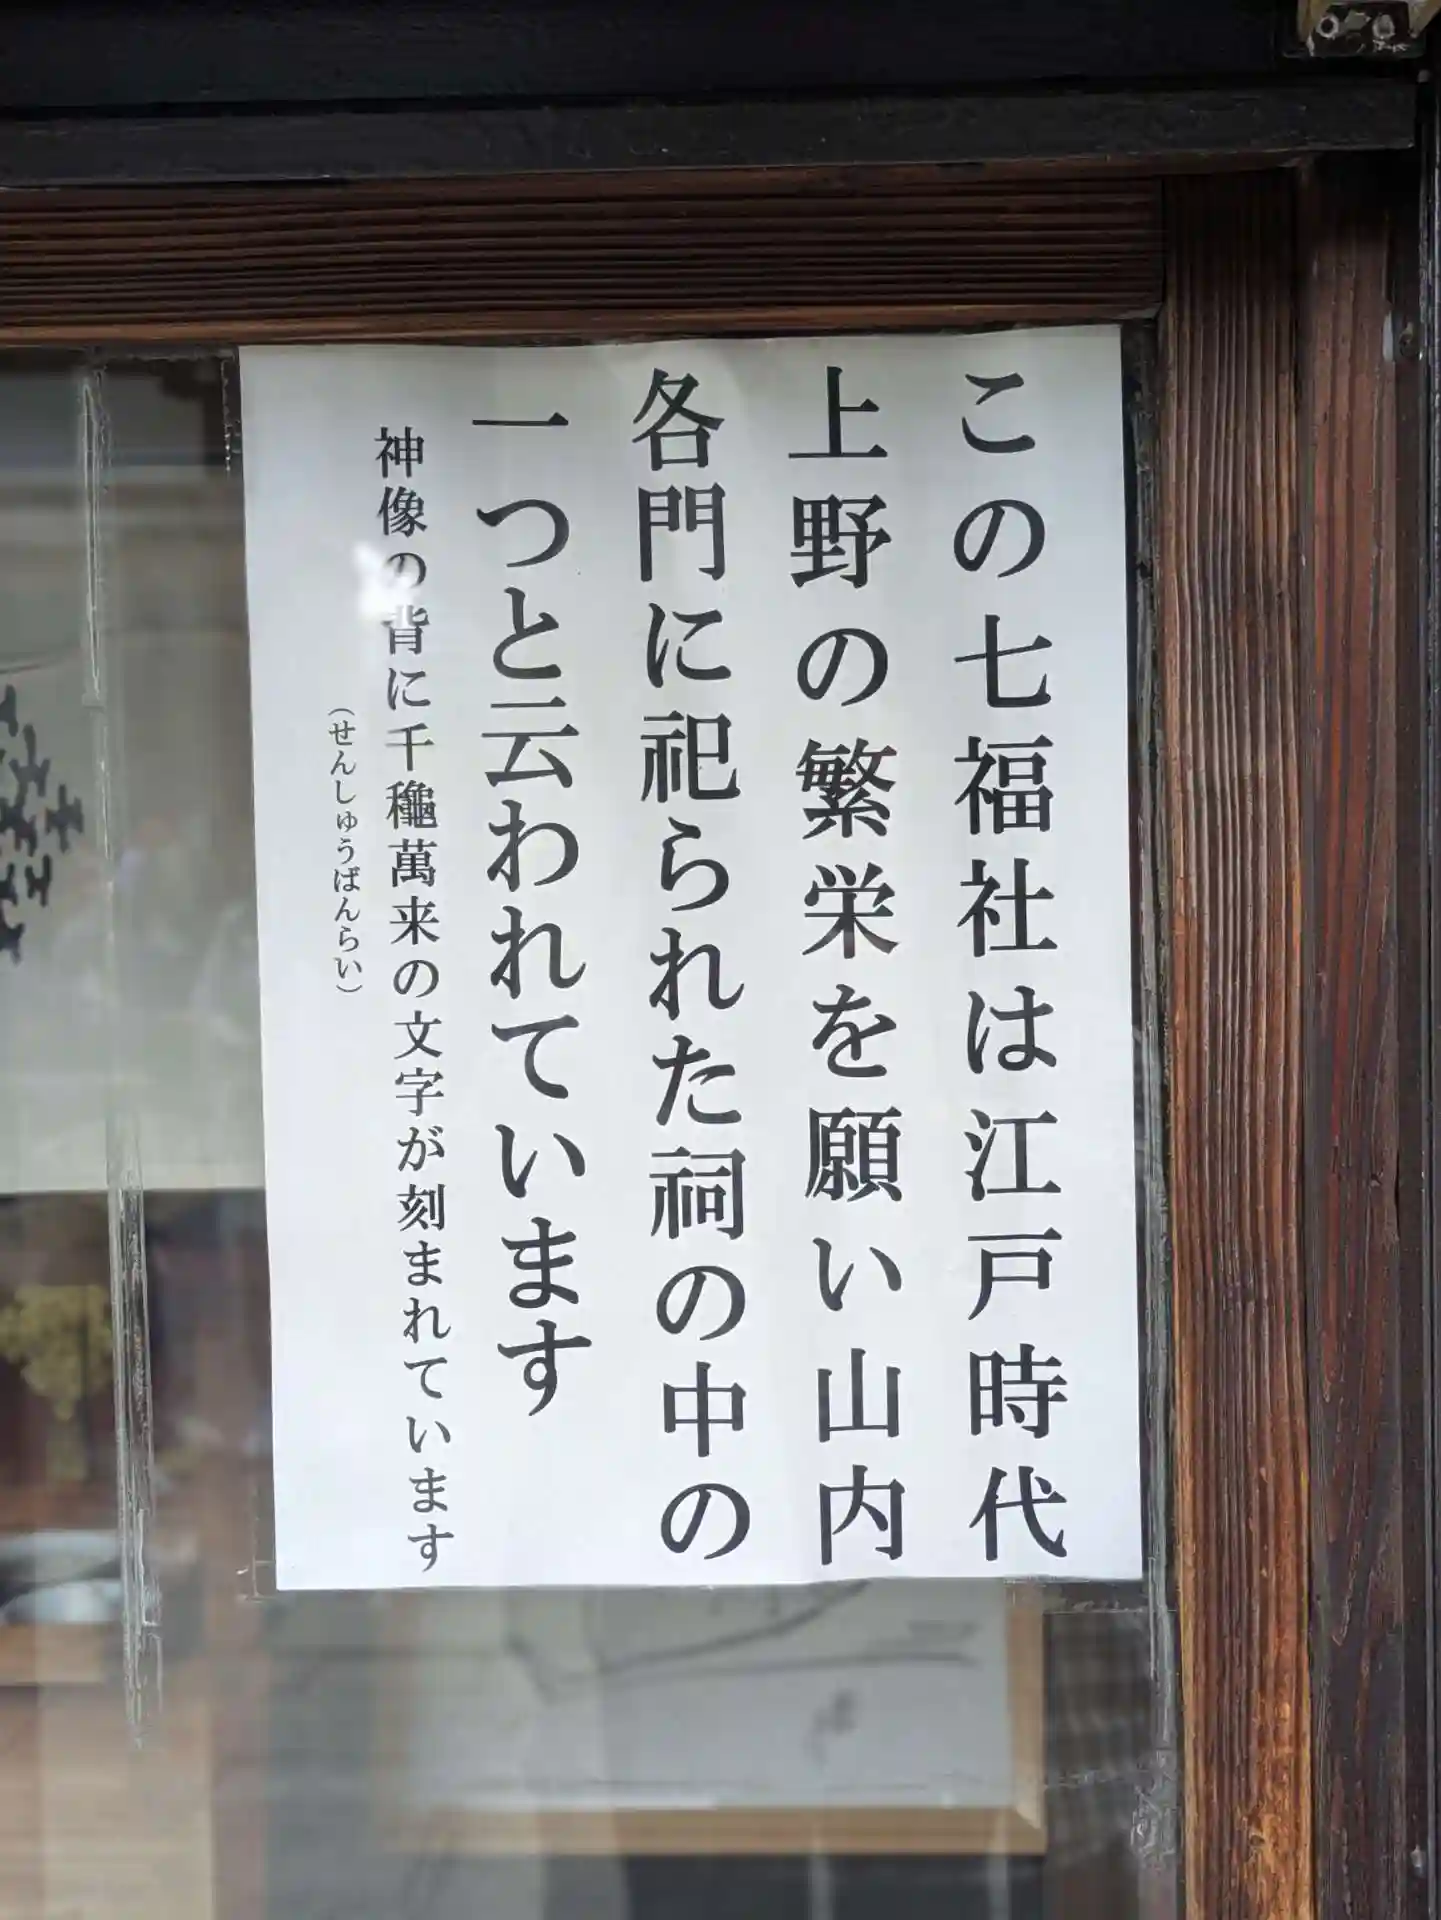 この七福社は江戸時代
上野の繁栄を願い山内
各門に祀られた祠の中の
一つと云われています
神像の背に千龝萬来の文字が刻まれています
（せんしゅうばんらい）